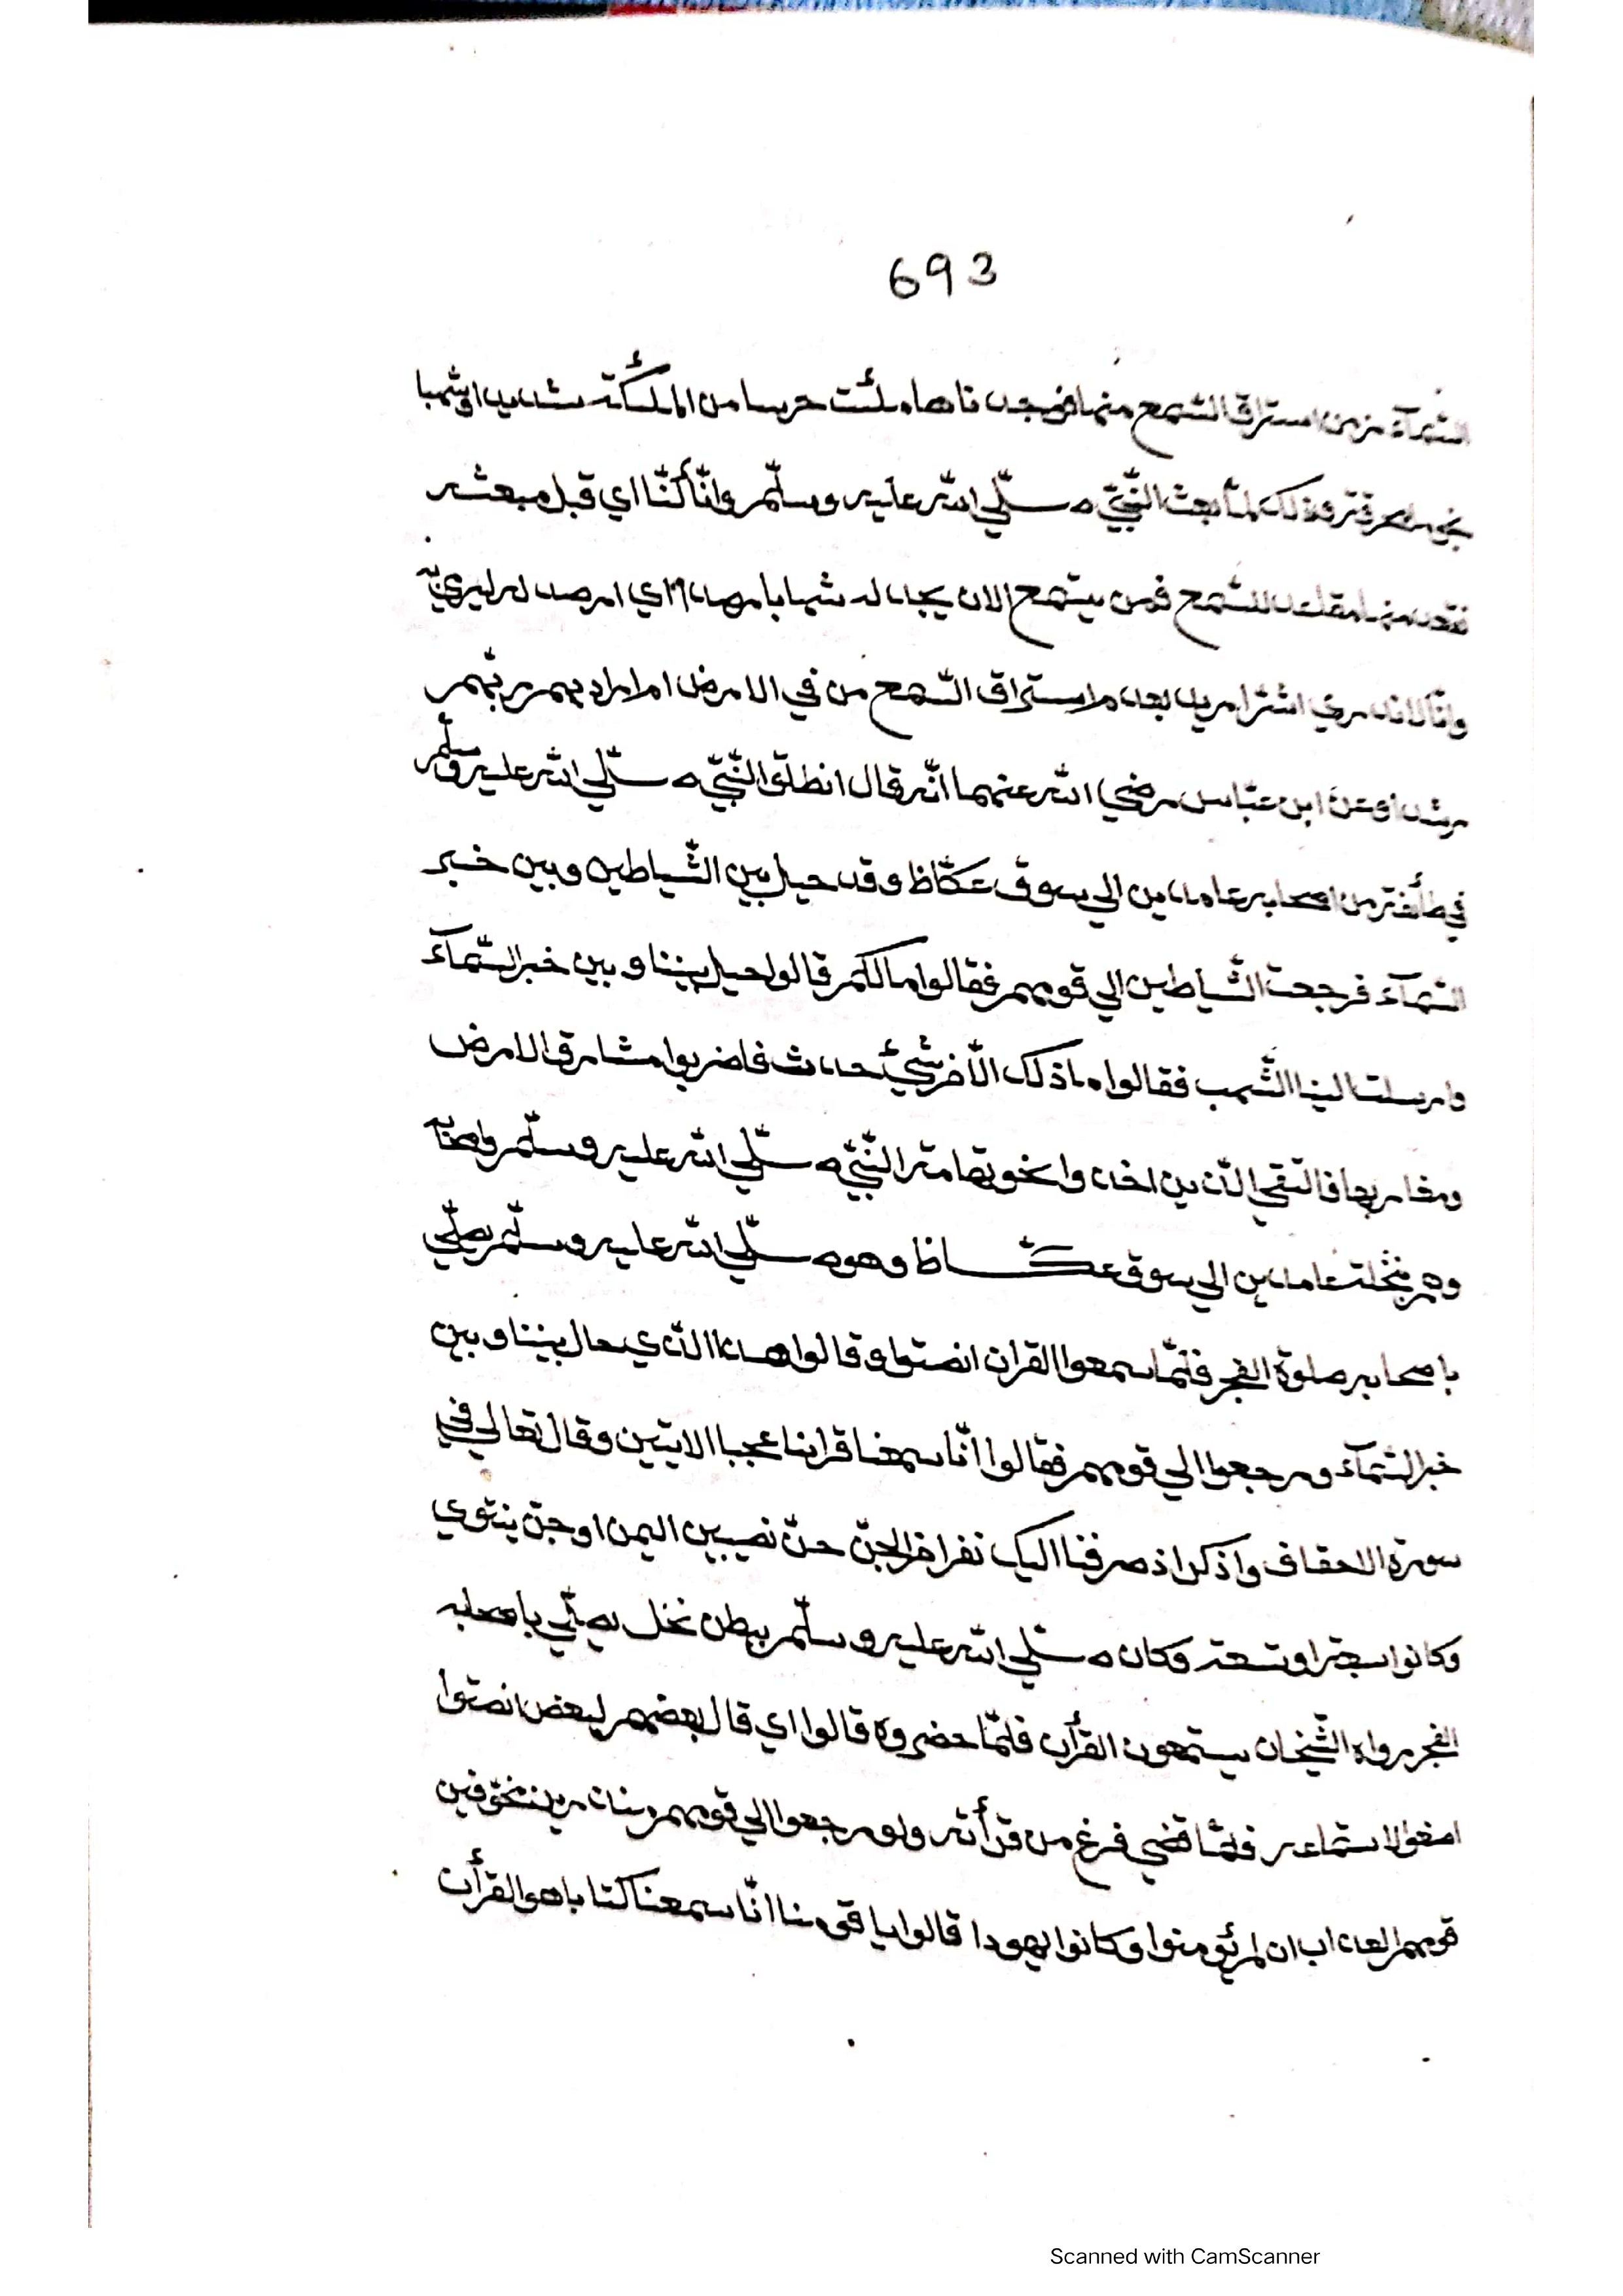 693
السّمآء من استراق السّمع منها فوجدناها ملئت حرسا من الملٰئكة شديدا وشهبا
نجوما محرقة وذلك لمّا بعث النّبيّ صلّي الله عليه وسلّم وانّا كنّا اي قبل مبعثه
نقعد منها مقاعد للسّمع فمن يستمع الان يجد له شهابا رصدا اي ارصد له ليرمي به
وانّا لا ندري اشرّ اريد بعدم استراق السّمع من في الارض ام اراد بهم ربّهم
رشدا وعن ابن عبّاس رضي الله عنهما انّه قال انطلق النّبيّ صلّي الله عليه وسلّم
في طآئفة من اصحابه عامدين الي سوق عكّاظ وقد حيل بين الشّياطين وبين خبر
السّمآء فرجعت الشّياطين الي قومهم فقالوا مالكم قالوا حيل بيننا وبين خبر السّمآء
وارسلت الينا الشّهب فقالوا ما ذلك الّا من شيئ حادث فاضربوا مشارق الارض
ومغاربها فالتقي الّذين اخذوا نحو تهامة النّبيّ صلّي الله عليه وسلّم واصحابه
وهم بنخلة عامدين الي سوق عكّاظ وهو صلّي الله عليه وسلّم يصلّي
باصحابه صلوة الفجر فلمّا سمعوا القران انصتوا وقالوا هذا الّذي حال بيننا وبين
خبر السّمآء ورجعوا الي قومهم فقالوا انّا سمعنا قرانا عجبا الايتين وقال تعالي في
سورة الاحقاف واذكر اذ صرفنا اليك نفرا من الجنّ جنّ نصيبين اليمن او جنّ ينوي
وكانوا سبعة او تسعة وكان صلّي الله عليه وسلّم ببطن نخل يصلّي باصحابه
الفجر رواه الشّيخان يستمعون القرأن فلمّا حضروه قالوا اي قال بعضهم لبعض انصتوا
اصغوا لاستماعه فلمّا قضي فرغ من قرأته ولو رجعوا الي قومهم منذرين مخوّفين
قومهم العذاب ان لم يؤمنوا وكانوا يهودا قالوا يا قومنا انّا سمعنا كتابا هو القرأن
Scanned with CamScanner